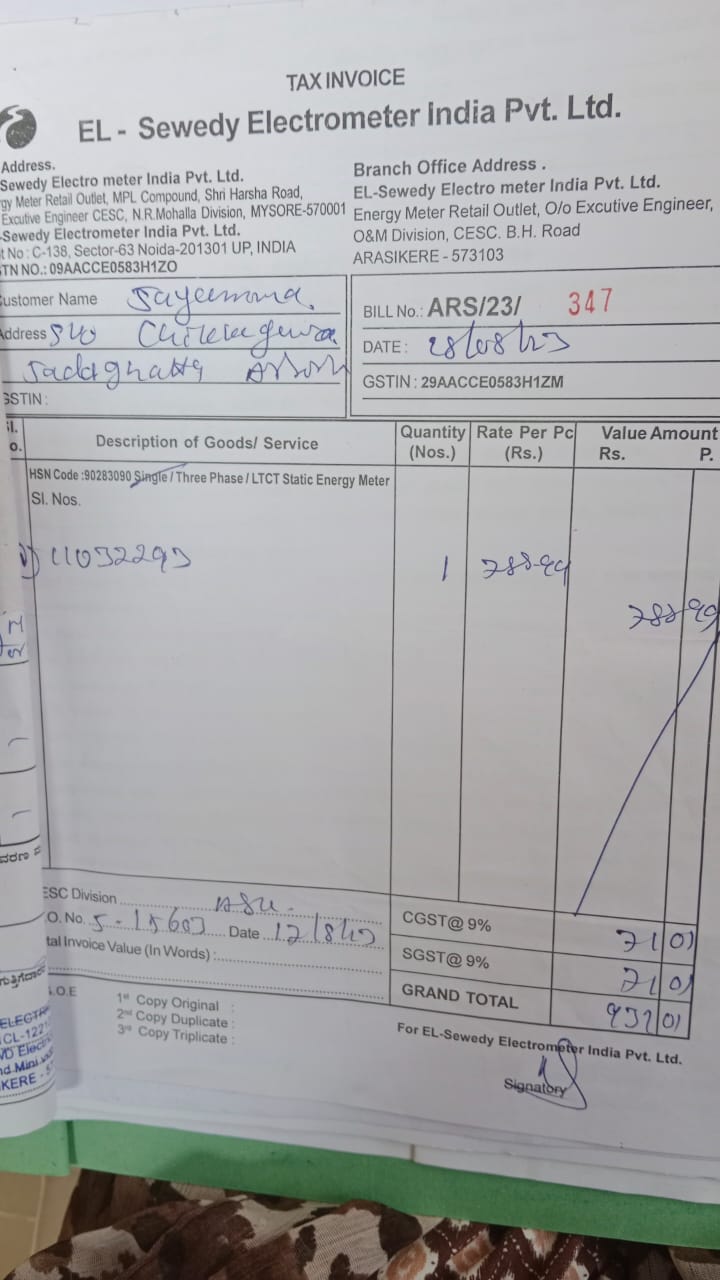 TAX INVOICE
EL - Sewedy Electrometer India Pvt. Ltd.
Address.
Sewedy Electro meter India Pvt. Ltd.
gy Meter Retail Outlet, MPL Compound, Shri Harsha Road,
Excutive Engineer CESC, N.R.Mohalla Division, MYSORE-570001
-Sewedy Electrometer India Pvt. Ltd.
t No : C-138, Sector-63 Noida-201301 UP, INDIA
TN NO.: 09AACCE0583H1ZO
Branch Office Address .
EL-Sewedy Electro meter India Pvt. Ltd.
Energy Meter Retail Outlet, O/o Excutive Engineer,
O&M Division, CESC. B.H. Road
ARASIKERE - 573103
ustomer Name
Address S/o
GSTIN :
BILL No.: ARS/23/ 347
DATE : 28/08/23
GSTIN : 29AACCE0583H1ZM
Sl. No. Description of Goods/ Service Quantity (Nos.) Rate Per Pc (Rs.) Value Amount Rs. P.
HSN Code :90283090 Single / Three Phase / LTCT Static Energy Meter
Sl. Nos.
11032293 1 788-99
788 99
ESC Division ASK
O. No. 5-15603 Date 12/8/23
tal Invoice Value (In Words) :
CGST@ 9% 71 01
SGST@ 9% 71 01
GRAND TOTAL 931 01
1st Copy Original :
2nd Copy Duplicate :
3rd Copy Triplicate :
For EL-Sewedy Electrometer India Pvt. Ltd.
Signatory